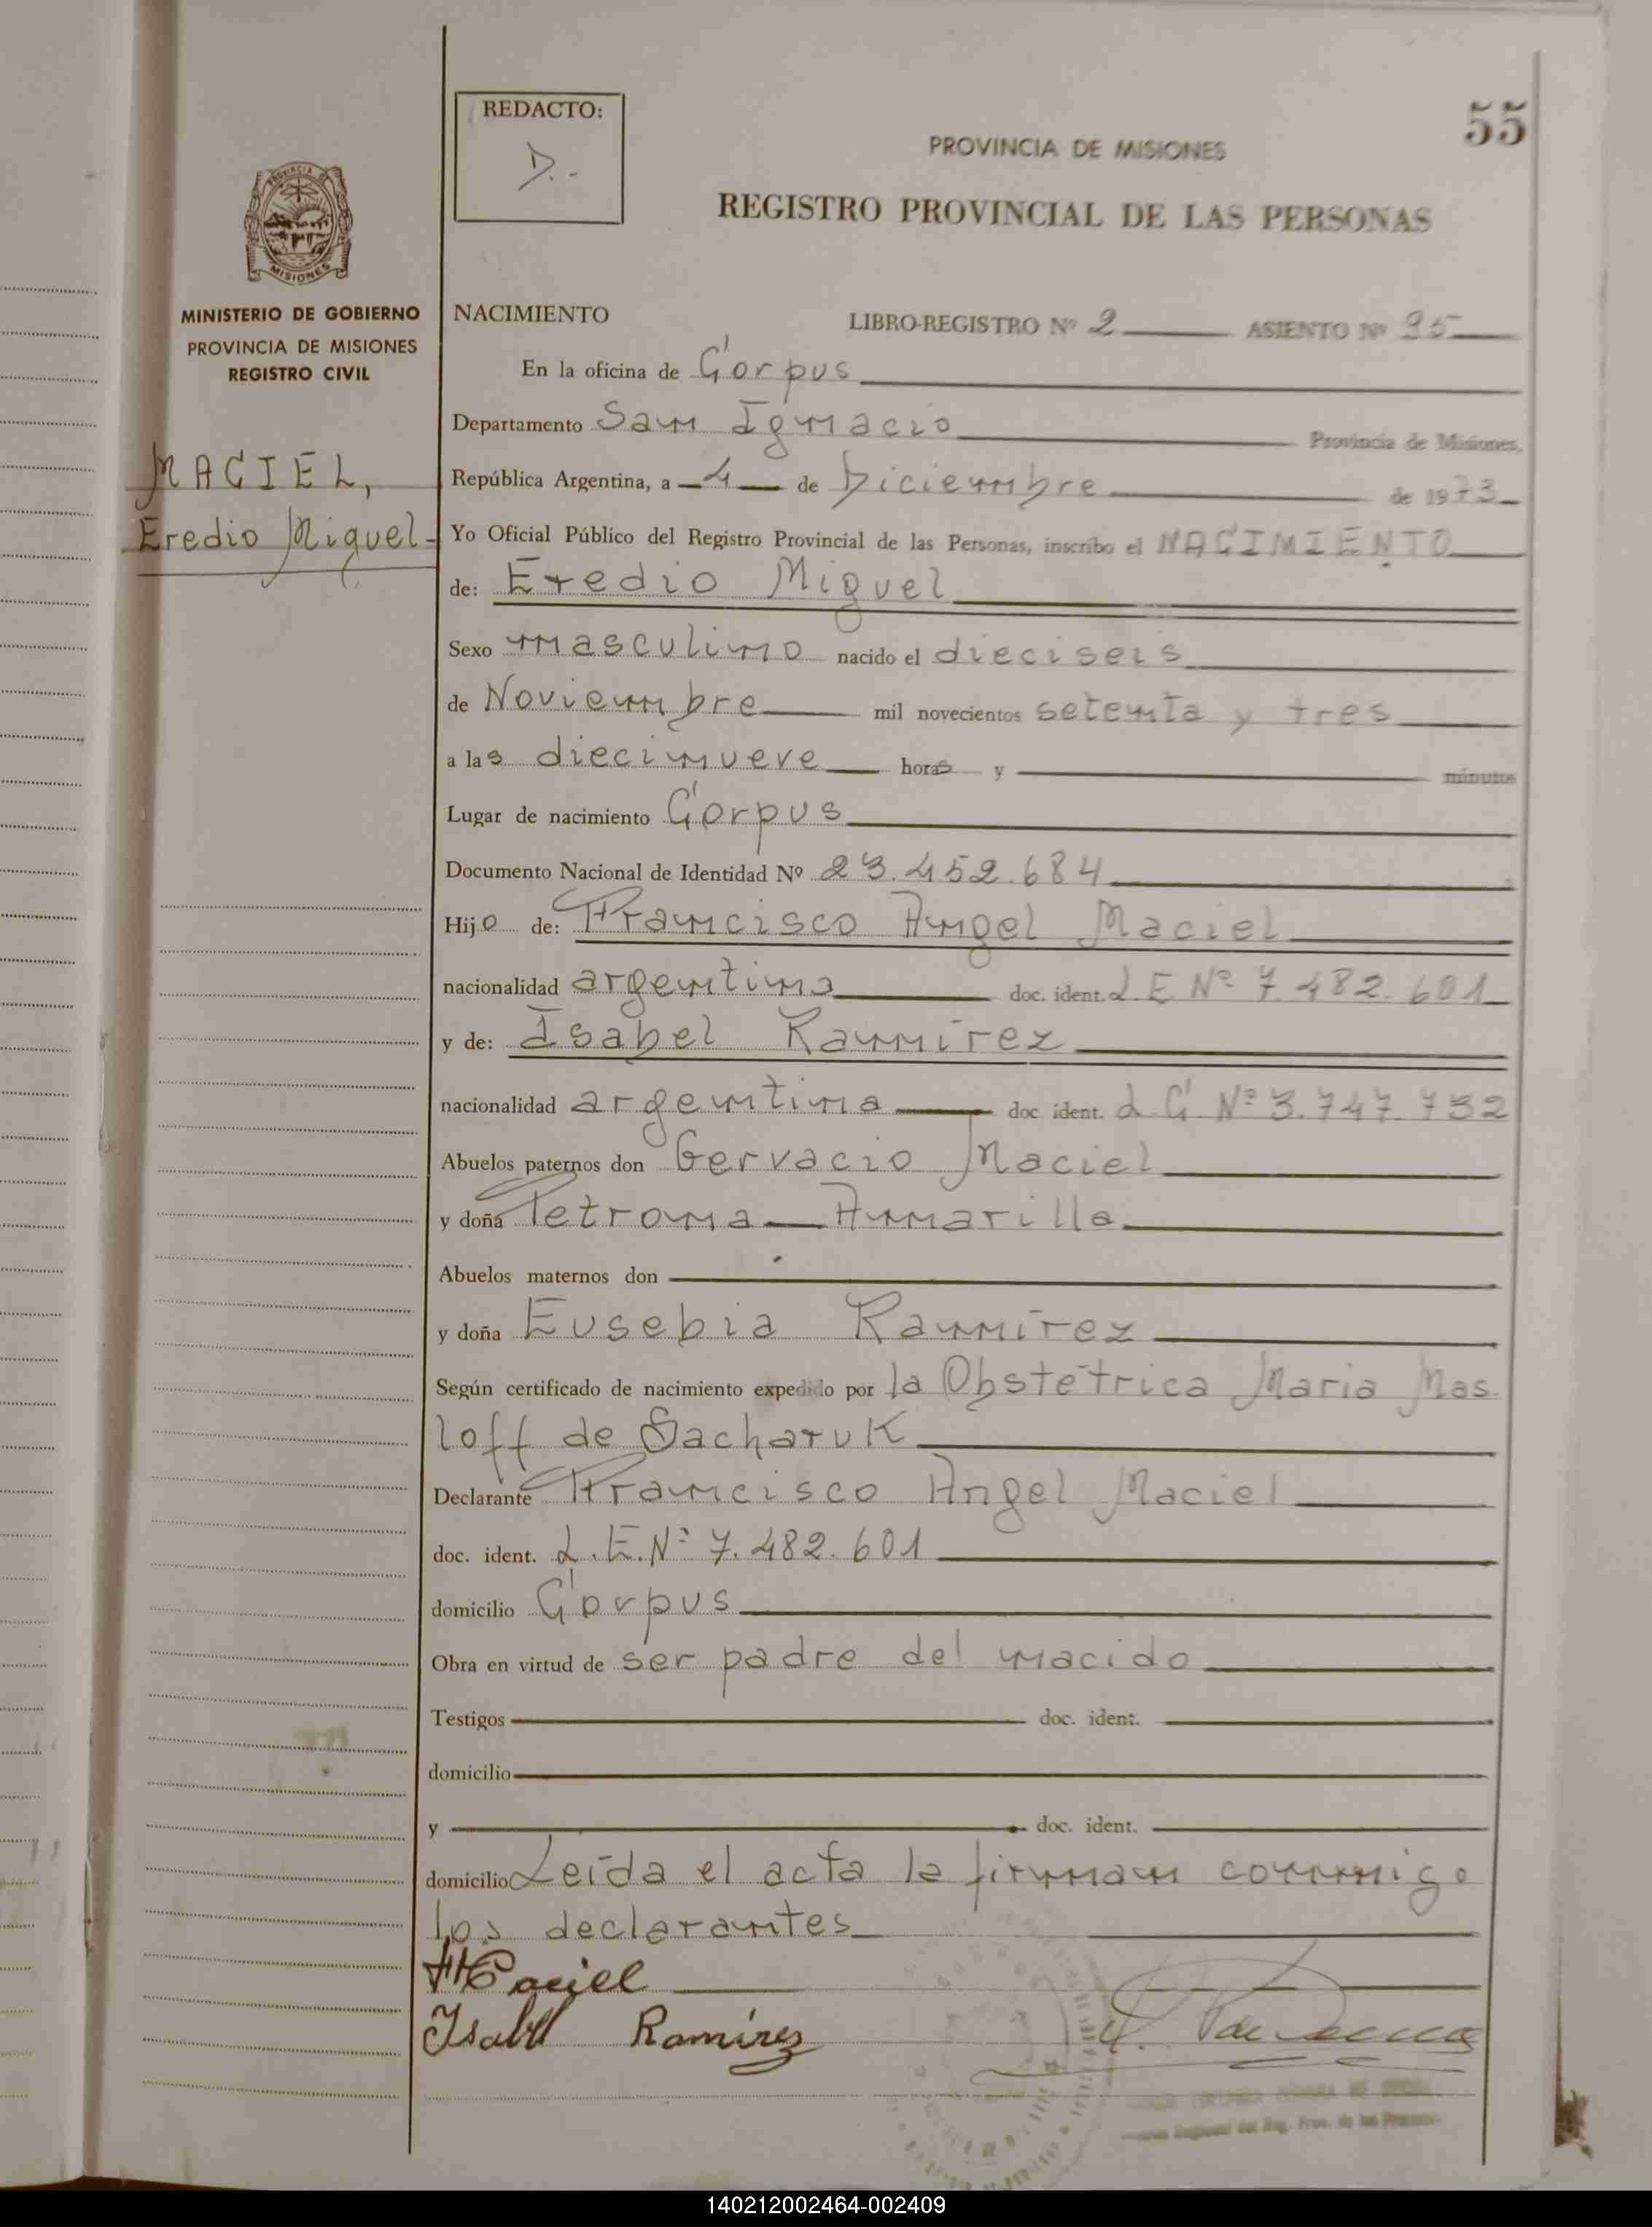 55
REDACTO:
D.-
PROVINCIA DE MISIONES
REGISTRO PROVINCIAL DE LAS PERSONAS
PROVINCIA DE
MISIONES
MINISTERIO DE GOBIERNO
PROVINCIA DE MISIONES
REGISTRO CIVIL
MACIEL,
Eredio Miguel-
NACIMIENTO LIBRO-REGISTRO Nº 2 ASIENTO Nº 95
En la oficina de Corpus
Departamento San Ignacio Provincia de Misiones,
República Argentina, a 4 de Diciembre de 1973
Yo Oficial Público del Registro Provincial de las Personas, inscribo el NACIMIENTO
de: Eredio Miguel
Sexo masculino nacido el dieciseis
de Noviembre mil novecientos setenta y tres
a las diecinueve horas y minutos
Lugar de nacimiento Corpus
Documento Nacional de Identidad Nº 23.452.684
Hijo de: Francisco Angel Maciel
nacionalidad argentina doc. ident. L E Nº 7.482.601
y de: Isabel Ramírez
nacionalidad argentina doc ident. L.C. Nº 3.747.732
Abuelos paternos don Gervacio Maciel
y doña Petrona Amarilla
Abuelos maternos don
y doña Eusebia Ramírez
Según certificado de nacimiento expedido por la Obstétrica Maria Mas
loff de Sacharuk
Declarante Francisco Angel Maciel
doc. ident. L.E.Nº 7.482.601
domicilio Corpus
Obra en virtud de ser padre del nacido
Testigos doc. ident.
domicilio
y doc. ident.
domicilio Leída el acta la firman conmigo
los declarantes
FMaciel
Isabel Ramírez
140212002464-002409